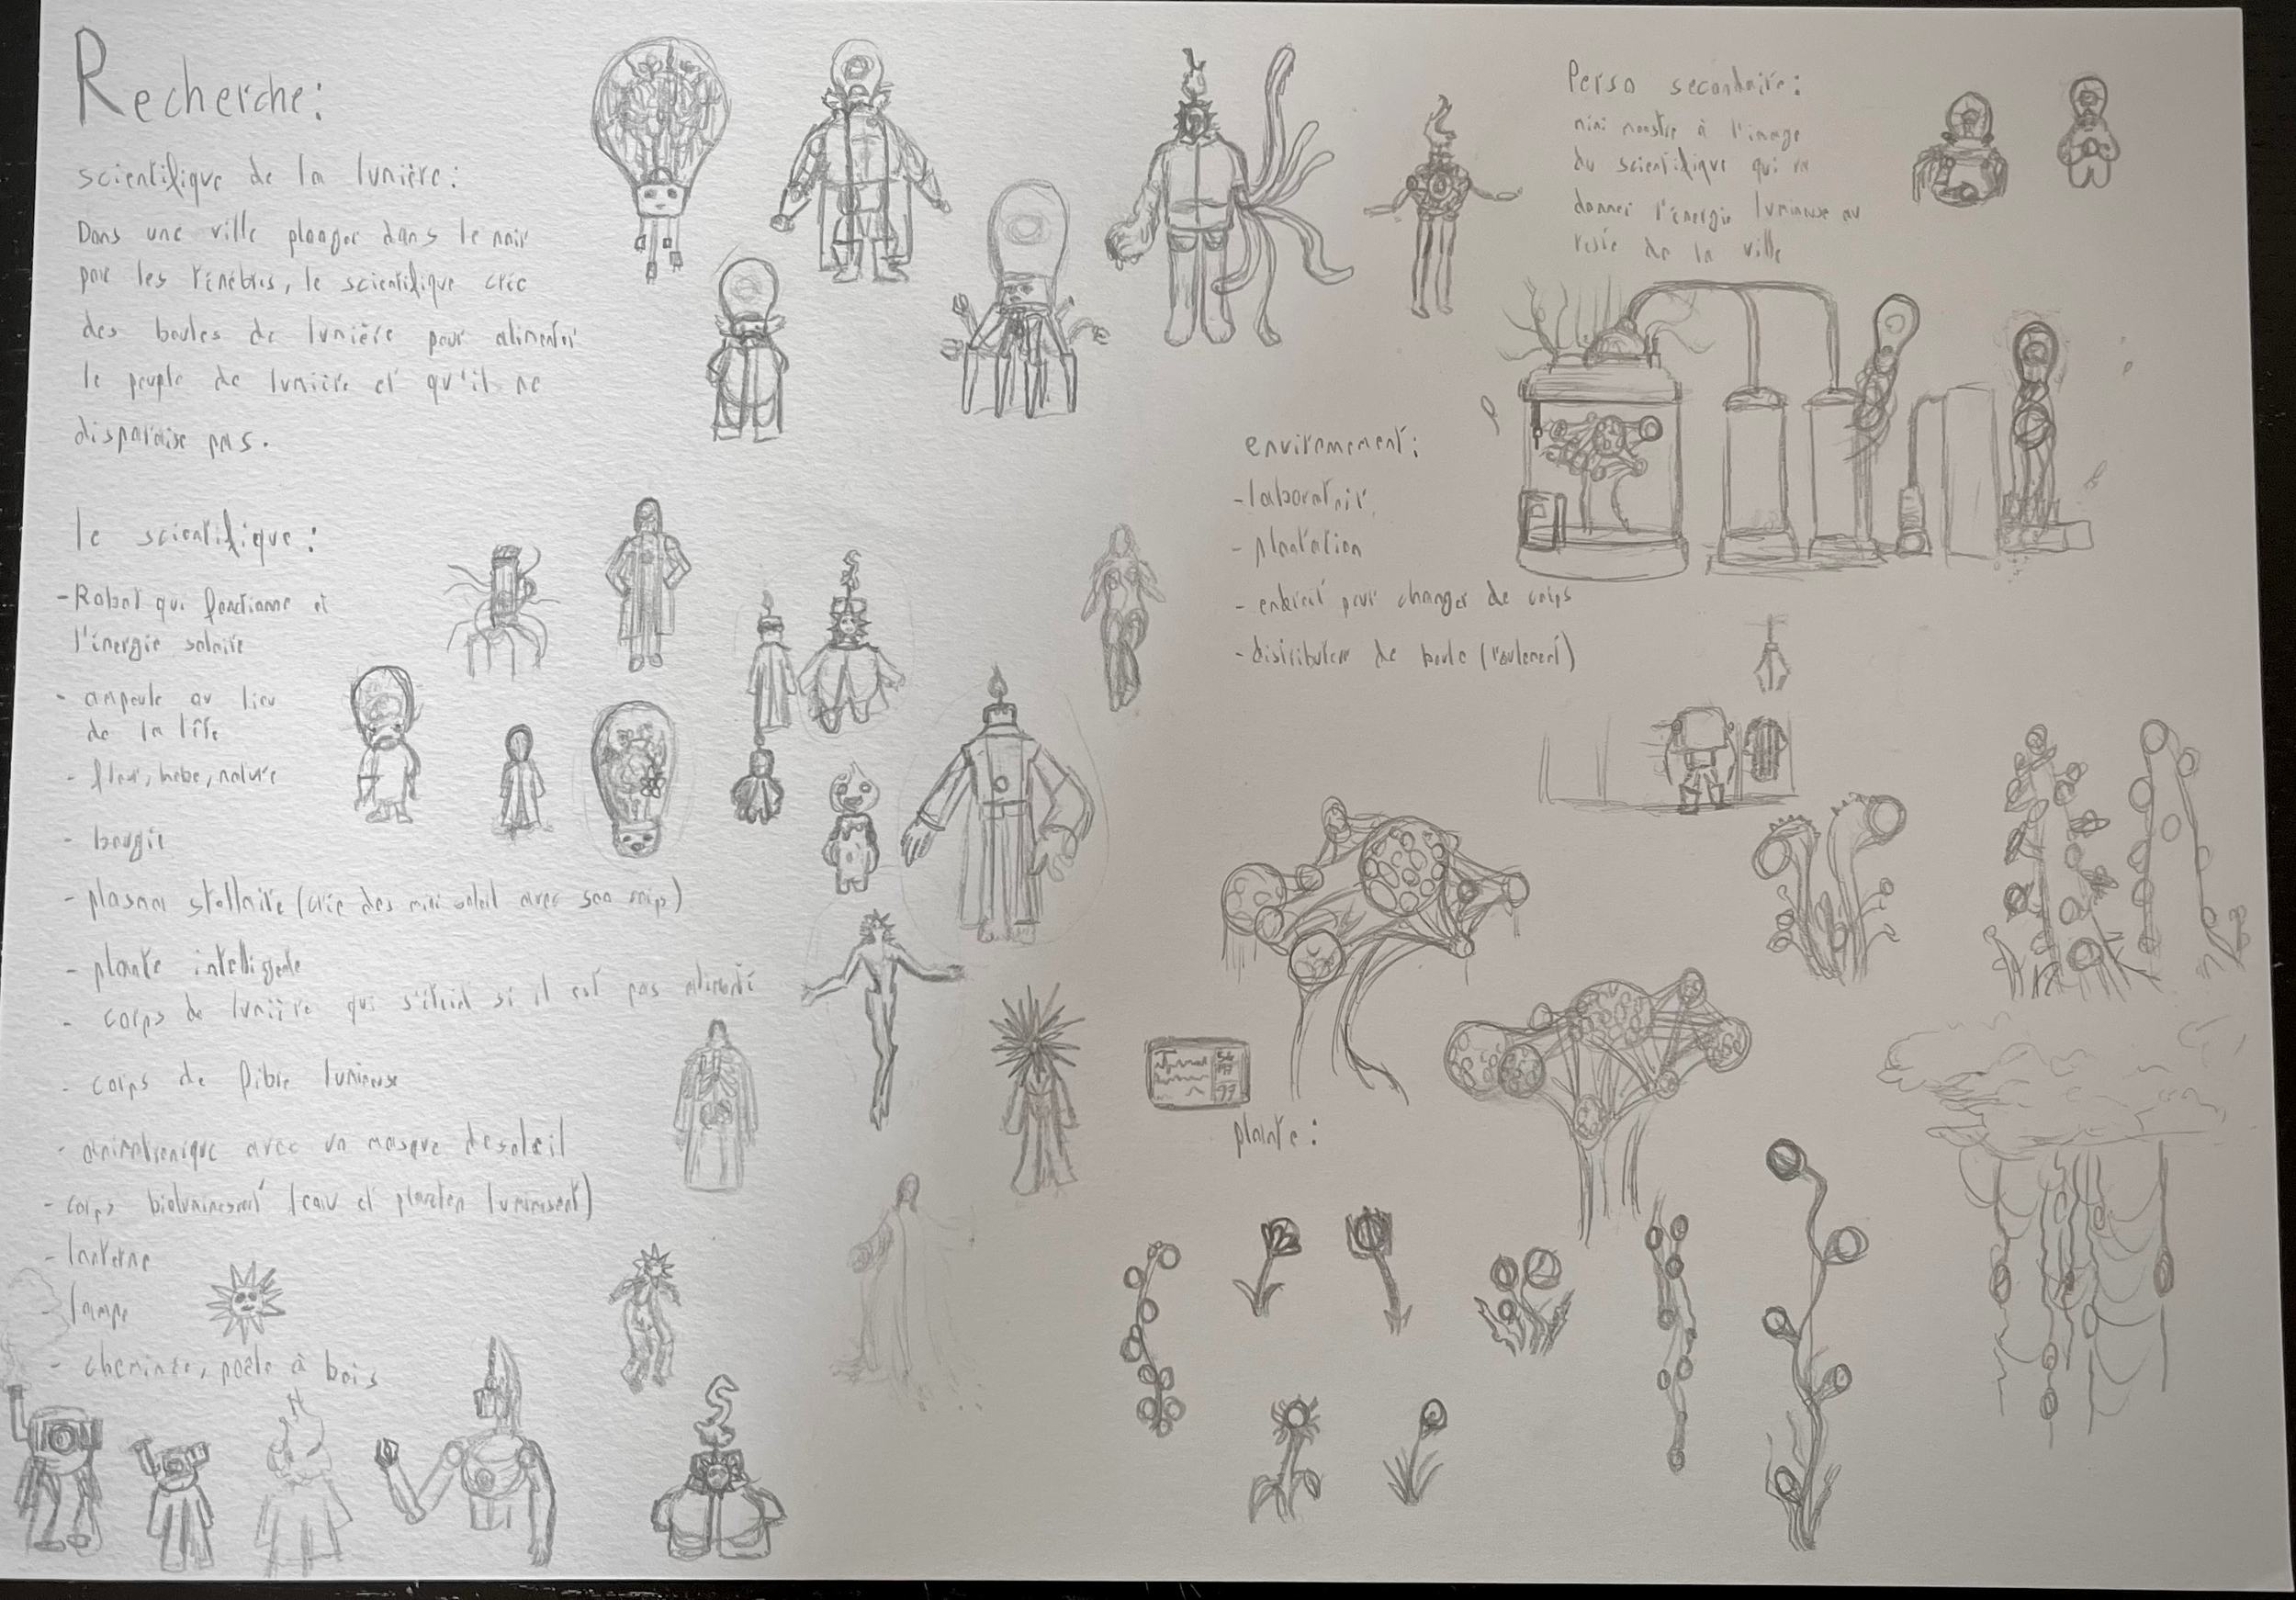 Recherche:
scientifique de la lumière:
Dans une ville plonger dans le noir
par les ténèbres, le scientifique crée
des boules de lumière pour alimenter
le peuple de lumière et qu'il ne
disparaise pas.
le scientifique:
- Robot qui fonctionne à
l'énergie solaire
- ampoule au lieu
de la tête
- fleur, hebe, nature
- bougie
- plasma stellaire (crée des mini soleil avec son corps)
- plante intelligente
- corps de lumière qui s'éteid si il est pas alimenté
- corps de fibre lumineuse
- animatronique avec un masque de soleil
- corps bioluminescent (eau et plancton luminesent)
- lanterne
- lampe
- cheminée, poêle à bois
Perso secondaire:
mini monstre à l'image
du scientifique qui va
donner l'énergie lumineuse au
reste de la ville
environement:
- laboratoir
- plantation
- endroit pour changer de corps
- distributeur de boule (roulement)
plante: